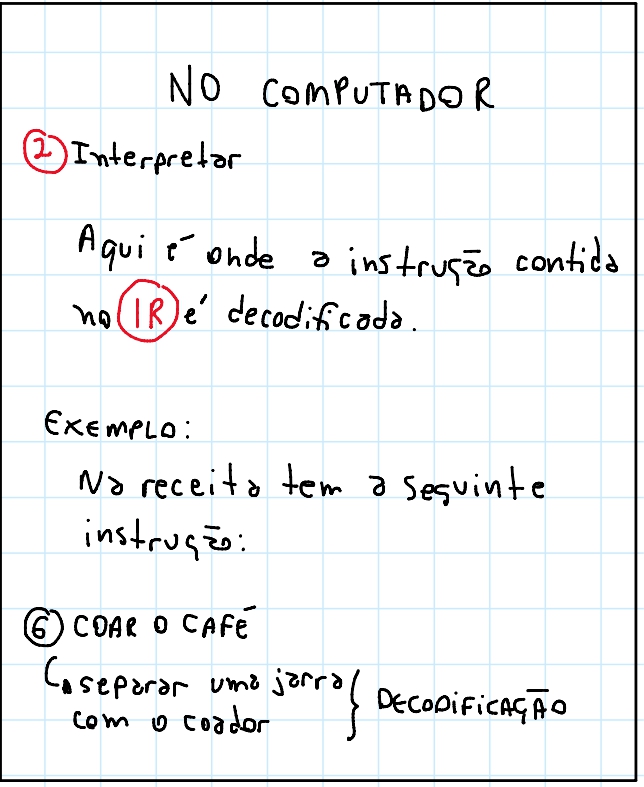 NO COMPUTADOR
2 Interpretar
Aqui é onde a instrução contida
no IR é decodificada.
EXEMPLO:
Na receita tem a seguinte
instrução:
6 COAR O CAFÉ
separar uma jarra
com o coador
DECODIFICAÇÃO